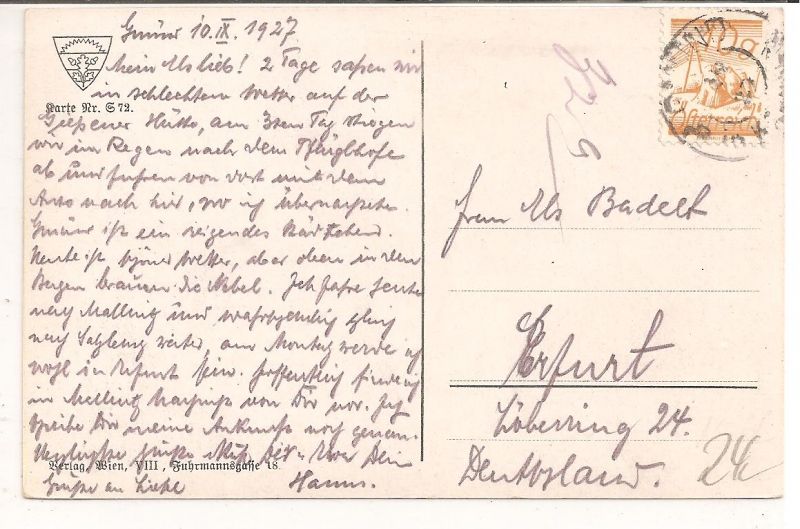 Gmünd 10.IX.1927.
Mein Uslieb! 2 Tage saßen wir
in schlechtem Wetter auf der
Karte Nr. S 72.
Gießener Hütte, am 3ten Tag zogen
wir im Regen nach dem Pflüglhofe
ab und fuhren von dort mit dem
Auto nach hier, wo ich übernachtete.
Gmünd ist ein reizendes Städtchen.
Heute ist schönes Wetter, aber oben in den
Bergen brauen die Nebel. Ich fahre heute
nach Mallnitz und wahrscheinlich gleich
nach Salzburg weiter, am Montag werde ich
wohl in Erfurt sein. Hoffentlich finde ich
in Mallnitz Nachricht von Dir vor. Ich
schreibe Dir meine Ankunft noch genau.
Herzlichste Grüße Dein
Verlag, Wien, VIII, Fuhrmannsgasse 18
Grüße an Hanns.
Österreich
Frau Us Badelt
Erfurt
Löberring 24.
Deutschland.